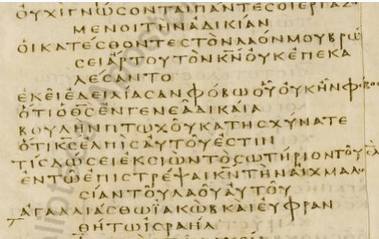 ΟΥΧΙΓΝΩϹΟΝΤΑΙΠΑΝΤΕϹΟΙΕΡΓΑΖΟ
ΜΕΝΟΙΤΗΝΑΔΙΚΙΑΝ
ΟΙΚΑΤΕϹΘΟΝΤΕϹΤΟΝΛΑΟΝΜΟΥΒΡΩ
ϹΕΙΑΡΤΟΥΤΟΝΚ̅Ν̅ΟΥΚΕΠΕΚΑ
ΛΕϹΑΝΤΟ
ΕΚΕΙΕΔΕΙΛΙΑϹΑΝΦΟΒΩΟΥΟΥΚΗΝΦΟΒΟϹ
ΟΤΙΟΘ̅Ϲ̅ΕΝΓΕΝΕΑΔΙΚΑΙΑ
ΒΟΥΛΗΝΠΤΩΧΟΥΚΑΤΗϹΧΥΝΑΤΕ
ΟΤΙΚ̅Ϲ̅ΕΛΠΙϹΑΥΤΟΥΕϹΤΙΝ
ΤΙϹΔΩϹΕΙΕΚϹΙΩΝΤΟϹΩΤΗΡΙΟΝΤΟΥΙ̅Η̅Λ̅
ΕΝΤΩΕΠΙϹΤΡΕΨΑΙΚ̅Ν̅ΤΗΝΑΙΧΜΑΛΩ
ϹΙΑΝΤΟΥΛΑΟΥΑΥΤΟΥ
ΑΓΑΛΛΙΑϹΘΩΙΑΚΩΒΚΑΙΕΥΦΡΑΝ
ΘΗΤΩΙϹΡΑΗΛ